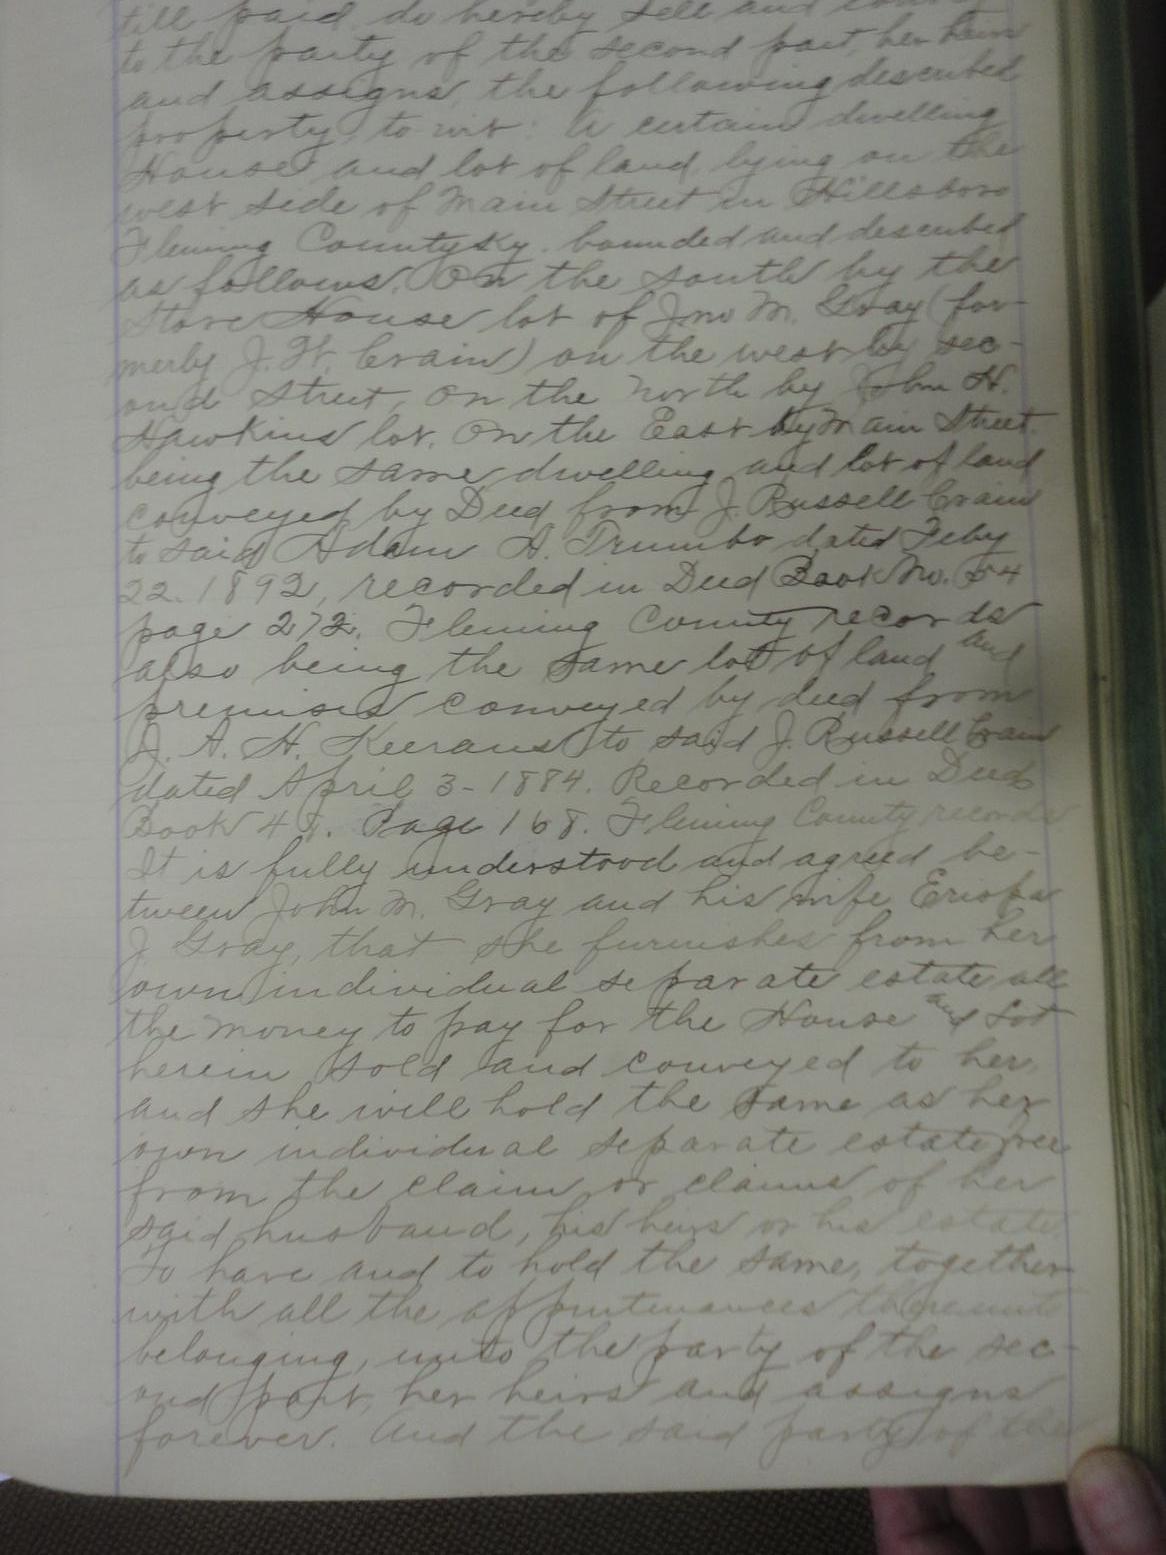 till paid do hereby sell and convey
to the party of the second part, her heirs
and assigns, the following described
property, to wit: A certain dwelling
House and lot of land lying on the
west side of Main Street in Hillsboro
Fleming County Ky. bounded and described
as follows. On the south by the
Store House lot of Jno M. Gray (for-
merly J. W. Crain) on the west by sec-
ond Street, on the North by John H.
Hawkins lot. On the East by Main Street.
being the same dwelling and lot of land
conveyed by Deed from J. Russell Crain
to said Adam A. Trumbo dated Feby
22. 1892, recorded in Deed Book No. 54
page 272. Fleming County records
also being the same lot of land and
premises conveyed by deed from
A. H. Keerans to said J. Russell Crain
dated April 3-1884. Recorded in Deed
Book Page 168. Fleming County records
It is fully understood and agreed be-
tween John M. Gray and his wife
J Gray, that she furnishes from her
own individual separate estate all
the money to pay for the House and Lot
herein sold and conveyed to her,
and she will hold the same as her
own individual separate estate free
from the claim or claims of her
said husband, his heirs or his estate.
To have and to hold the same, together
with all the appurtenances thereunto
belonging, unto the party of the sec-
ond part, her heirs and assigns
forever. And the said party of the